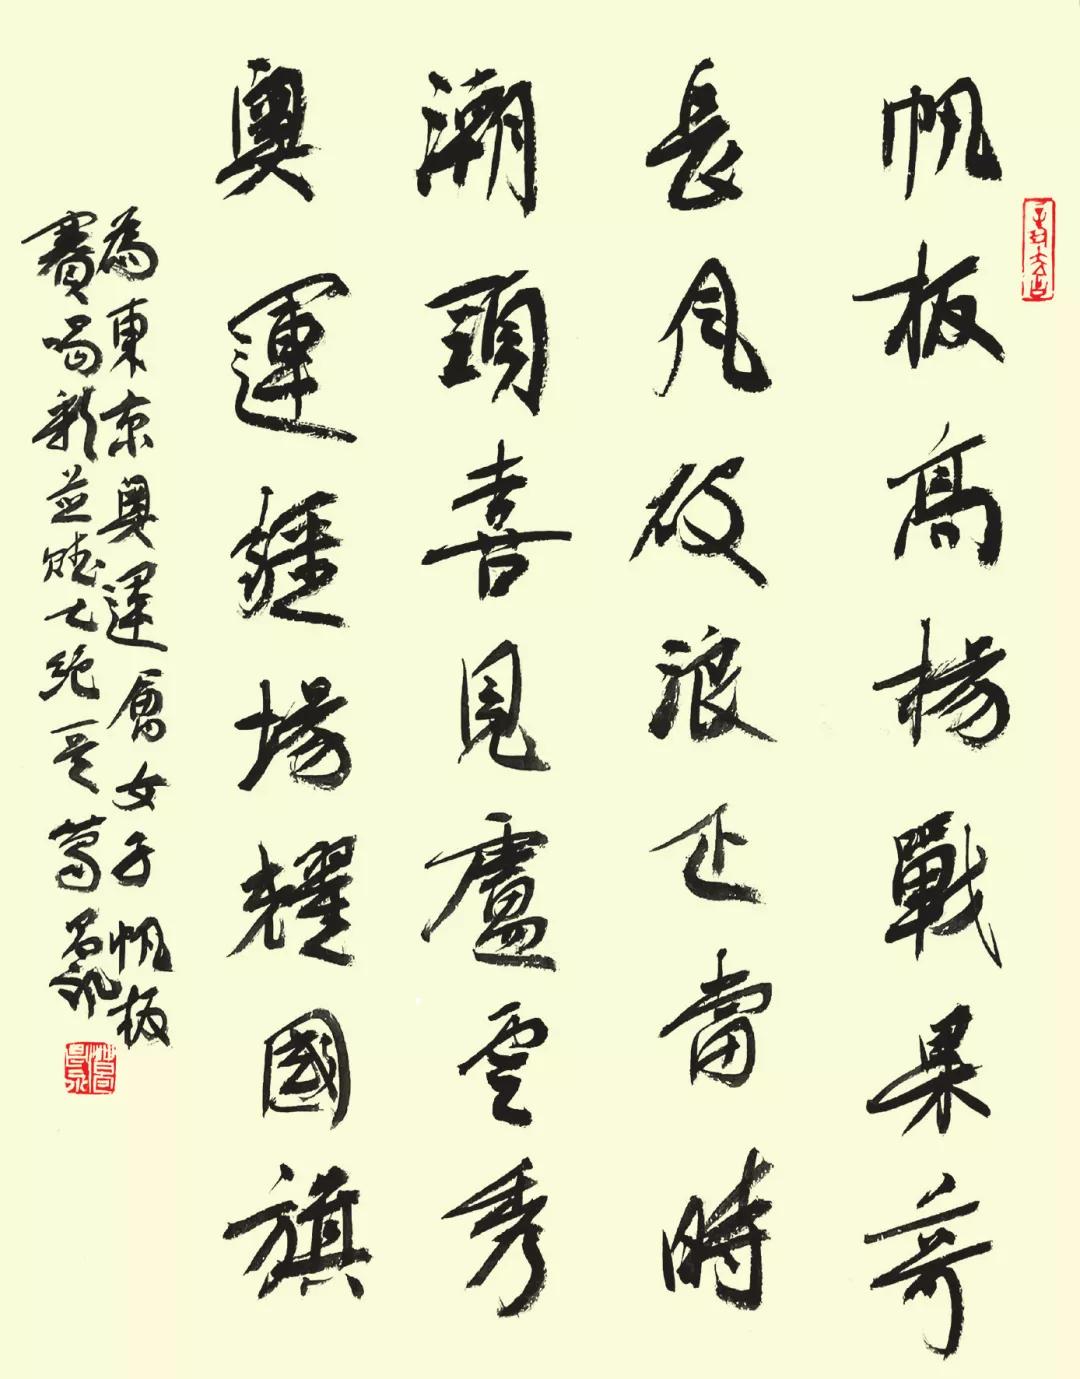 帆板高揚戰果奇
長風破浪正當時
潮頭喜見盧雲秀
奧運疆場耀國旗
為東京奧運會女子帆板
賽 並賦七絕一首 葛昌永
葛昌永